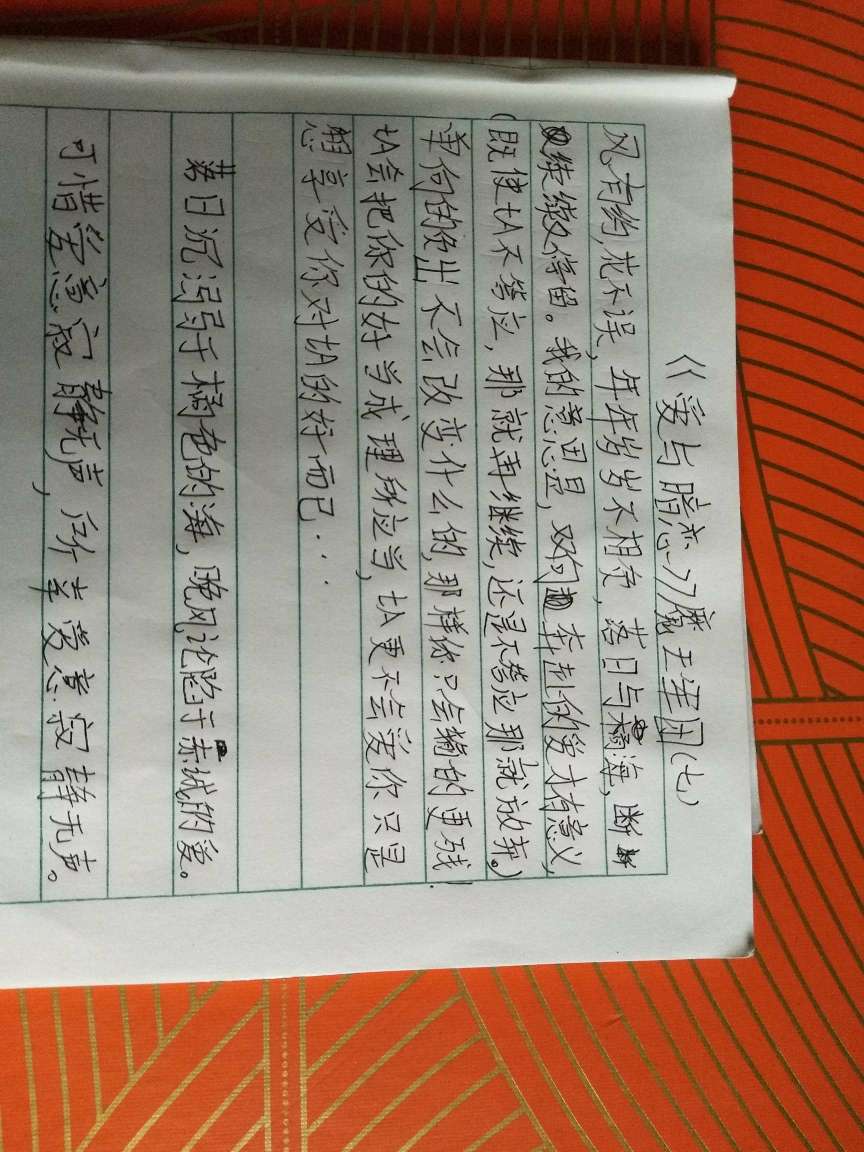 《爱与暗恋刀魔王军团(七)
风有约,花不误,年年岁岁不相负,落日与橘海,断
断续续又停留。我的意思是,双向奔赴的爱才有意义,
(既使tA不答应,那就再继续,还是不答应那就放弃。)
单向的付出不会改变什么的,那样你只会输的更残!
tA会把你的好当成理所应当,tA更不会爱你只是
想享受你对tA的好而已···
落日沉溺于橘色的海,晚风沦陷于赤诚的爱。
可惜爱意寂静无声,所幸爱意寂静无声。